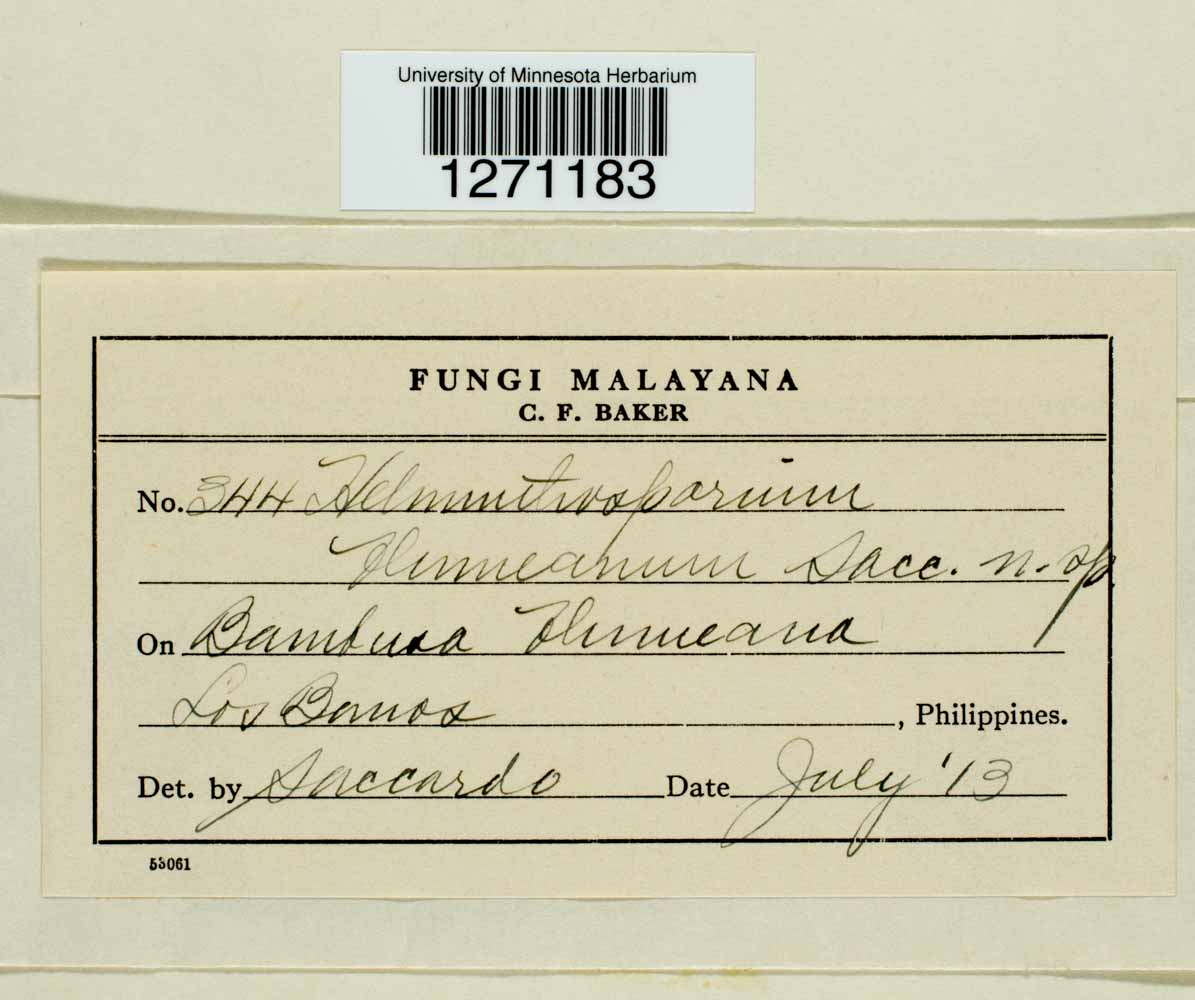 University of Minnesota Herbarium
1271183
FUNGI MALAYANA
C. F. BAKER
No. 344 Helminthosporium
Blumeanum Sacc. n. sp.
On Bambusa Blumeana
Los Banos, Philippines.
Det. by Saccardo Date July '13